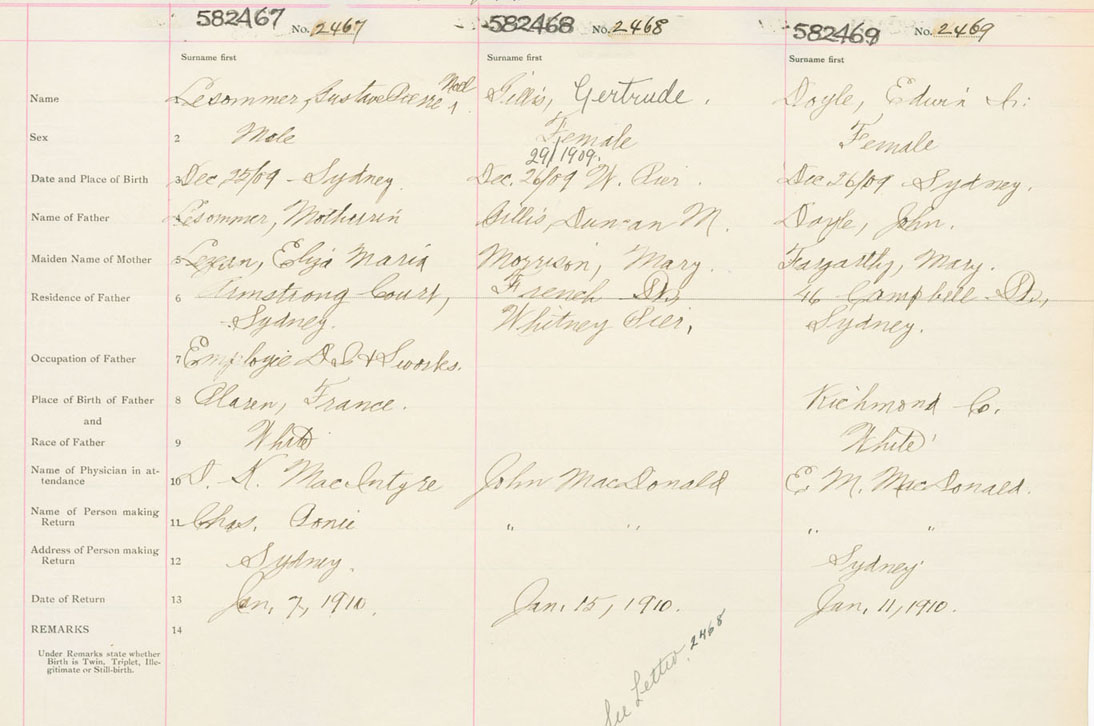 582467 No. 2467 582468 No. 2468 582469 No. 2469
Surname first Surname first Surname first
Name 1 Lesommer, Gustave Pierre Noel Gillis, Gertrude. Doyle, Edwin
Sex 2 Male Female Female
29/1909.
Date and Place of Birth 3 Dec 25/09 Sydney. Dec. 26/09 W. Pier. Dec 26/09 Sydney.
Name of Father 4 Lesommer, Mathurin Gillis, Duncan M. Doyle, John.
Maiden Name of Mother 5 Eliza Maria Morrison, Mary. Mary.
Residence of Father 6 Armstrong Court, French St., 46 Campbell St.,
Sydney. Whitney Pier, Sydney.
Occupation of Father 7 Employie D. I & S works.
Place of Birth of Father 8 France. Richmond Co.
and
Race of Father 9 White White
Name of Physician in at-
tendance 10 K. MacIntyre John MacDonald E. M. MacDonald.
Name of Person making
Return 11 Chas. " " " "
Address of Person making
Return 12 Sydney. Sydney
Date of Return 13 Jan. 7, 1910. Jan. 15, 1910. Jan. 11, 1910.
REMARKS 14
Under Remarks state whether
Birth is Twin, Triplet, Ille-
gitimate or Still-birth.
See Letter 2468